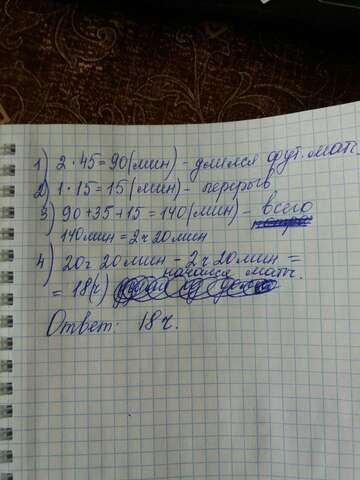 1) 2·45=90(мин) - длился фут. матч.
2) 1·15=15(мин) - перерыв
3) 90+35+15=140(мин) - всего
140мин=2ч20мин
4) 20ч20мин-2ч20мин=
=18(ч) начался матч.
Ответ: 18ч.